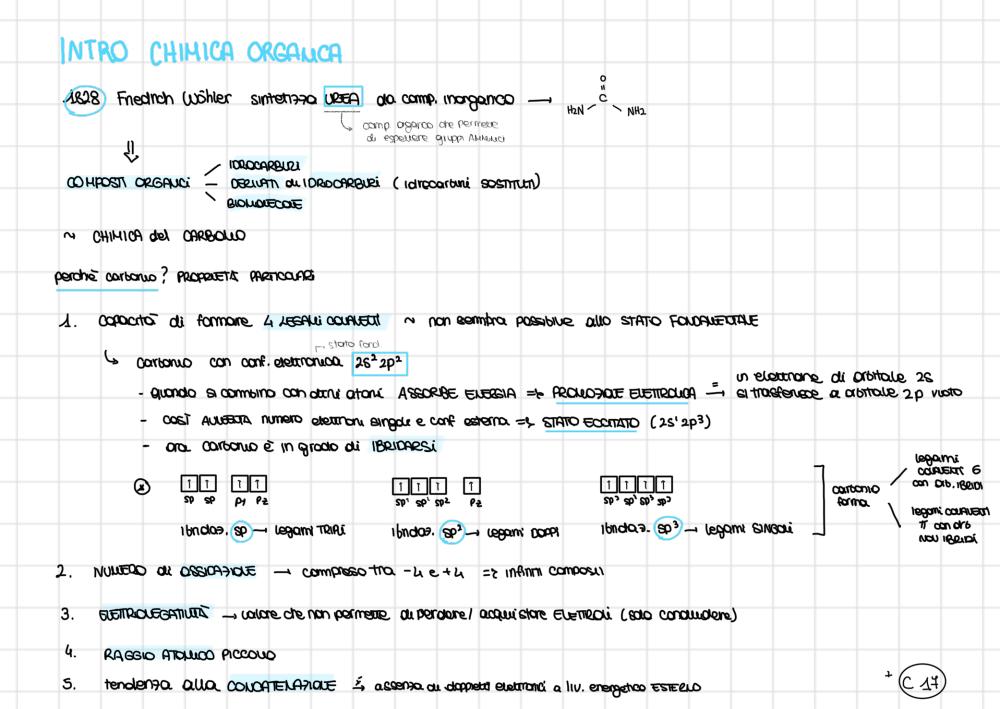 INTRO CHIMICA ORGANICA
1828 Friedrich Wöhler sintetizza UREA da comp. inorganico →
O
C
H2N NH2
comp organico che permette
di espellere gruppi AMMINICI
COMPOSTI ORGANICI
IDROCARBURI
DERIVATI di IDROCARBURI (idrocarburi SOSTITUITI)
BIOMOLECOLE
~ CHIMICA del CARBONIO
perché carbonio? PROPRIETÀ PARTICOLARI
1. capacità di formare 4 LEGAMI COVALENTI ~ non sembra possibile allo STATO FONDAMENTALE
stato fond.
carbonio con conf. elettronica 2s² 2p²
- quando si combina con altri atomi ASSORBE ENERGIA => PROMOZIONE ELETTRONICA = → un elettrone di orbitale 2s
si trasferisce a orbitale 2p vuoto
- così AUMENTA numero elettroni singoli e conf esterna => STATO ECCITATO (2s¹ 2p³)
- ora carbonio è in grado di IBRIDARSI
sp sp py pz
sp² sp² sp² pz
sp³ sp³ sp³ sp³
ibridaz. sp → legami TRIPLI
ibridaz. sp² → legami DOPPI
ibridaz. sp³ → legami SINGOLI
carbonio
forma
legami
COVALENTI σ
con orb. IBRIDI
legami COVALENTI
π con orb
NON IBRIDI
2. NUMERO di OSSIDAZIONE → compreso tra -4 e +4 => infiniti composti
3. ELETTRONEGATIVITÀ → valore che non permette di perdere/ acquistare ELETTRONI (solo condividere)
4. RAGGIO ATOMICO PICCOLO
5. tendenza alla CONCATENAZIONE assenza di doppietti elettronici a liv. energetico ESTERNO
C 17